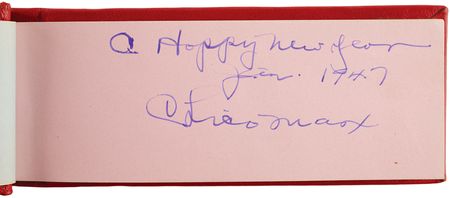 A Happy New Year
Jan. 1947
Chico Marx